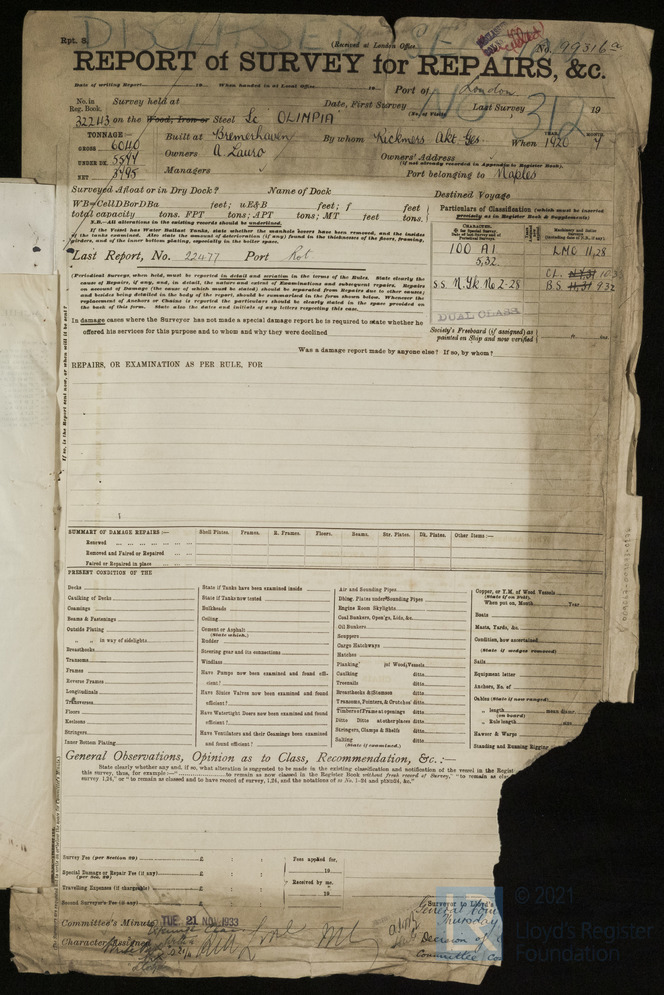 Rpt. 8.
(Received at London Office
No. 99316a
REPORT of SURVEY for REPAIRS, &c.
Date of writing Report 19 When handed in at Local Office 19 Port of London
No. in Reg. Book. Survey held at Date, First Survey Last Survey 19
(No. of Visits
32243 on the Wood, Iron or Steel Sc OLIMPIA
TONNAGE:— Built at Bremerhaven By whom Rickmers Akt. Ges. When 1920 7
YEAR. MONTH.
GROSS 6040
UNDER DK. 5597
NET 3795
Owners A. Lauro Owners' Address
(if not already recorded in Appendix to Register Book).
Managers Port belonging to Naples
Surveyed Afloat or in Dry Dock? Name of Dock Destined Voyage
WB=CellDBorDBa feet; uE&B feet; f feet
total capacity tons. FPT tons; APT tons; MT feet tons.
N.B.—All alterations in the existing records should be underlined.
If the Vessel has Water Ballast Tanks, state whether the manhole covers have been removed, and the insides
of the tanks examined. Also state the amount of deterioration (if any) found in the thicknesses of the floors, framing,
girders, and of the inner bottom plating, especially in the boiler space.
Particulars of Classification (which must be inserted
precisely as in Register Book & Supplements)
100 A1
5,32.
LMC 11,28
Last Report, No. 22477 Port Rot
(Periodical Surveys, when held, must be reported in detail and seriatim in the terms of the Rules. State clearly the
cause of Repairs, if any, and, in detail, the nature and extent of Examinations and subsequent repairs. Repairs
on account of Damage (the cause of which must be stated) should be separated from Repairs due to other causes;
and besides being detailed in the body of the report, should be summarized in the form shewn below. Whenever the
replacement of Anchors or Chains is reported the particulars should be clearly stated in the space set out
on the form. State also the dates and initials of any letters respecting this case.
B.S. 11,31 9,32
DUAL CLASS
In damage cases where the Surveyor has not made a special damage report he is required to state whether he
offered his services for this purpose and to whom and why they were declined
Society's Freeboard (if assigned) as
painted on Ship and now verified
Was a damage report made by anyone else? If so, by whom?
REPAIRS, OR EXAMINATION AS PER RULE, FOR
SUMMARY OF DAMAGE REPAIRS :— Shell Plates. Frames. R. Frames. Floors. Beams. Str. Plates. Dk. Plates. Other Items :—
Renewed
Removed and Faired or Repaired
Faired or Repaired in place
PRESENT CONDITION OF THE
Decks
Caulking of Decks
Coamings
Beams & Fastenings
Outside Plating
" " in way of sidelights
Breasthooks
Transoms
Frames
Reverse Frames
Longitudinals
Transverses
Floors
Keelsons
Stringers
Inner Bottom Plating
State if Tanks have been examined inside
State if Tanks now tested
Bulkheads
Ceiling
Cement or Asphalt
(State which.)
Rudder
Steering gear and its connections
Windlass
Have Pumps now been examined and found efficient?
Have Sluice Valves now been examined and found
efficient?
Have Watertight Doors now been examined and found
efficient?
Have Ventilators and their Coamings been examined
and found efficient?
Air and Sounding Pipes
Dblng. Plates under Sounding Pipes
Engine Room Skylights
Coal Bunkers, Open'gs, Lids, &c.
Oil Bunkers
Scuppers
Cargo Hatchways
Hatches
Planking (of Wood) Vessels
Caulking ditto
Treenails ditto
Breasthooks & Stemson ditto
Transoms, Pointers, & Crutches ditto
Timbers of Frame at openings ditto
Ditto Ditto at other places ditto
Stringers, Clamps & Shelfs ditto
Salting ditto
(State if examined.)
Copper, or Y.M. of Wood Vessels
(State if on Felt).
When put on, Month Year
Boats
Masts, Yards, &c.
Condition, how ascertained
(State if wedges removed)
Sails
Equipment letter
Anchors, No. of
Cables (State if now ranged)
" length mean diamr.
(on board)
" Rule length size
Hawser & Warps
Standing and Running Rigging
General Observations, Opinion as to Class, Recommendation, &c. :—
State clearly whether any and, if so, what alteration is suggested to be made in the existing classification and notification of the vessel in the Regist
this survey, thus, for example :—" to remain as now classed in the Register Book without fresh record of Survey," "to remain as clas
survey 1,24," or "to remain as classed and to have record of survey, 1,24, and the notations of ss No. 1-24 and ptND24, &c."
Survey Fee (per Section 29) £ : : Fees applied for,
Special Damage or Repair Fee (if any) £ : : 19
(per Sec. 29)
Travelling Expenses (if chargeable) £ : : Received by me,
Second Surveyor's Fee (if any) £ : : 19
Surveyor to Lloyd's
Committee's Minute TUE 21 NOV 1933
Character Assigned
Thursday
Decision of
Committee
© 2021
Lloyd's Register
Foundation